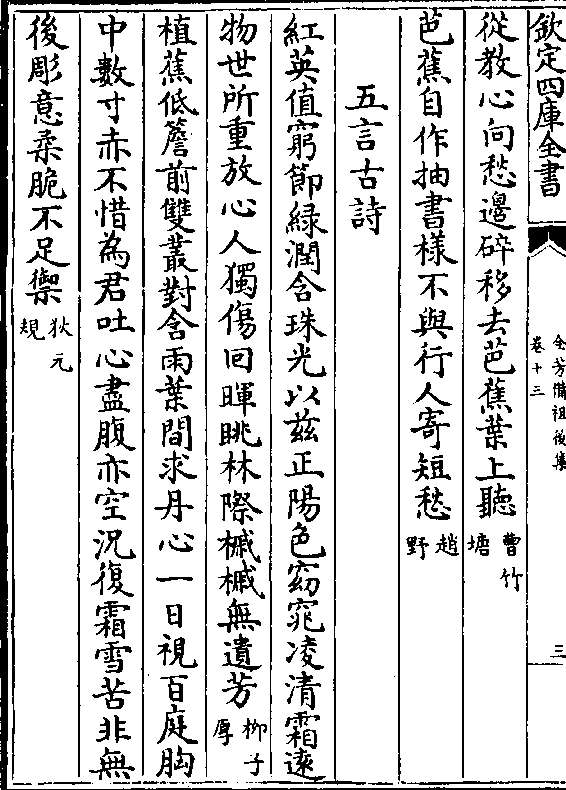 欽定四庫全書
全芳備祖後集
卷十三
三
從教心向愁邊碎移去芭蕉葉上聽曹竹塘
芭蕉自作抽書様不與行人寄短愁趙野
五言古詩
紅英值窮節緑潤含珠光以兹正陽色窈窕凌清霜遠
物世所重放心人獨傷回暉眺林際槭槭無遺芳柳子厚
植蕉低簷前雙叢對含雨葉間求丹心一日視百庭胸
中數寸赤不惜為君吐心盡腹亦空況復霜雪苦非無
後彫意柔脆不足禦狄元規